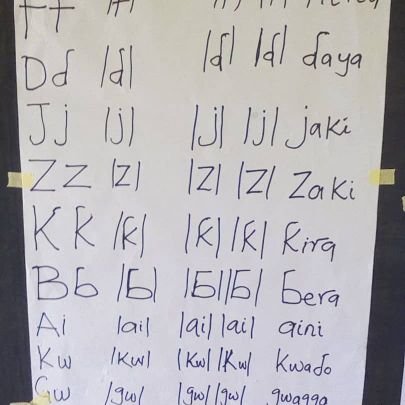 Dɗ /ɗ/ /ɗ/ /ɗ/ ɗaya
Jj /j/ /j/ /j/ jaki
Zz /z/ /z/ /z/ Zaki
Ƙƙ /ƙ/ /ƙ/ /ƙ/ ƙira
Bɓ /ɓ/ /ɓ/ /ɓ/ ɓera
Ai /ai/ /ai/ /ai/ aini
Kw /kw/ /kw/ /kw/ kwaɗo
Gw /gw/ /gw/ /gw/ gwagga